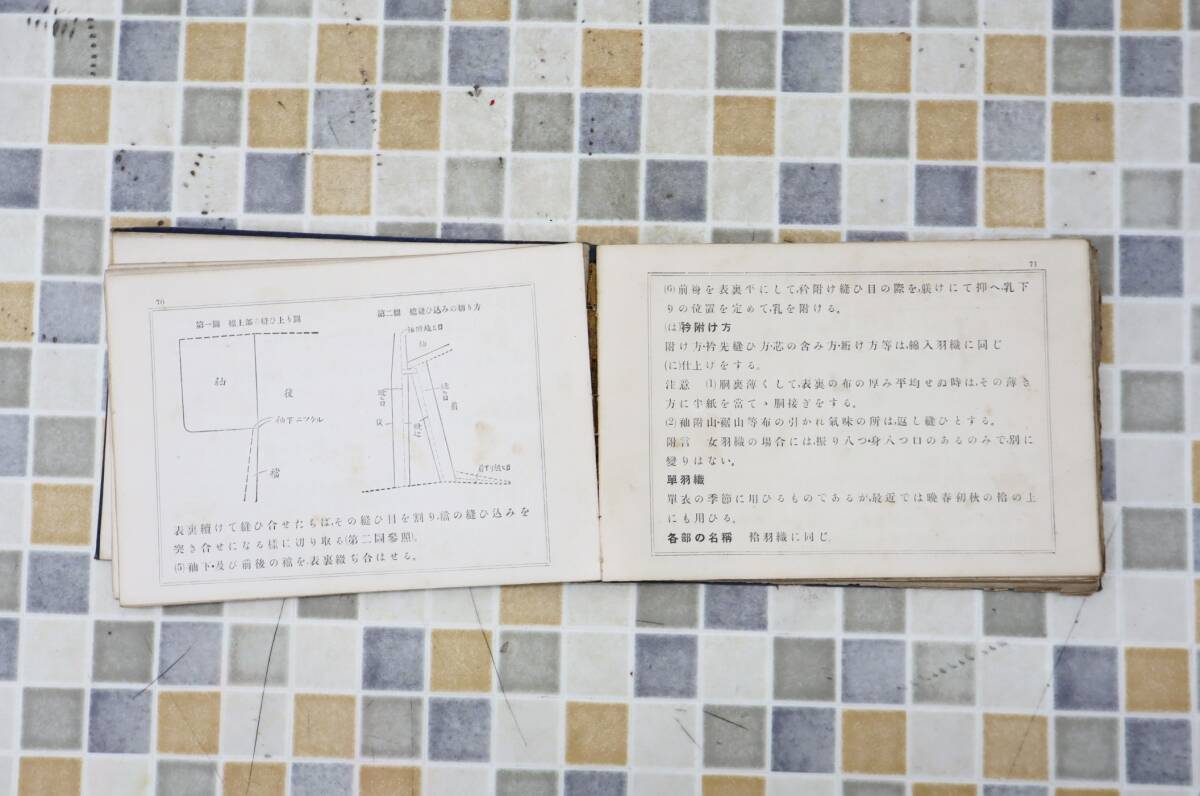 70
第一圖 襠上部の縫ひ上り圖
袖
後
袖下ニツケル
襠
第二圖 襠縫ひ込みの切り方
袖附縫ヒ目
袖
前
表裏續けて縫ひ合せたらば、その縫ひ目を割り、襠の縫ひ込みを
突き合せになる樣に切り取る(第二圖參照)。
(5)袖下・及び前後の襠を、表裏綴ぢ合はせる。
71
(6)前身を表裏平にして、衿附け縫ひ目の際を、躾けにて抑へ、乳下
りの位置を定めて、乳を附ける。
(は)衿附け方
附け方・衿先縫ひ方・芯の含み方・絎け方等は、綿入羽織に同じ
(に)仕上げをする。
注意 (1)胴裏薄くして、表裏の布の厚み平均せぬ時は、その薄き
方に半紙を當てゝ胴接ぎをする。
(2)袖附山・裾山等布の引かれ氣味の所は、返し縫ひとする。
附言 女羽織の場合には、振り八つ・身八つ口のあるのみで、別に
變りはない。
單羽織
單衣の季節に用ひるものであるが、最近では晩春初秋の袷の上
にも用ひる。
各部の名稱 袷羽織に同じ。